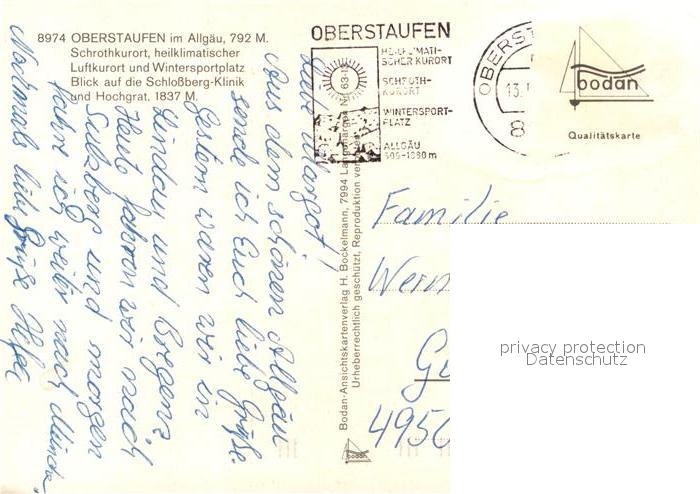 8974 OBERSTAUFEN im Allgäu, 792 M.
Schrothkurort, heilklimatischer
Luftkurort und Wintersportplatz
Blick auf die Schloßberg-Klinik
und Hochgrat, 1837 M.
OBERSTAUFEN
HEILKLIMATI-
SCHER KURORT
SCHROTH-
KURORT
WINTERSPORT-
PLATZ
ALLGÄU
OBERST
13.
8
bodan
Qualitätskarte
Liebe Margot!
Aus dem schönen Allgäu
sende ich Euch liebe Grüße.
Gestern waren wir in
Lindau und Bregenz
Heut fahren wir nach
Sulzberg und morgen
fahre ich weiter nach
Nochmals liebe Grüße
Bodan-Ansichtskartenverlag H. Bockelmann, 7994 Langenargen Nr. 63-13
Urheberrechtlich geschützt, Reproduktion
bodan
Familie
Wern
4950
privacy protection
Datenschutz